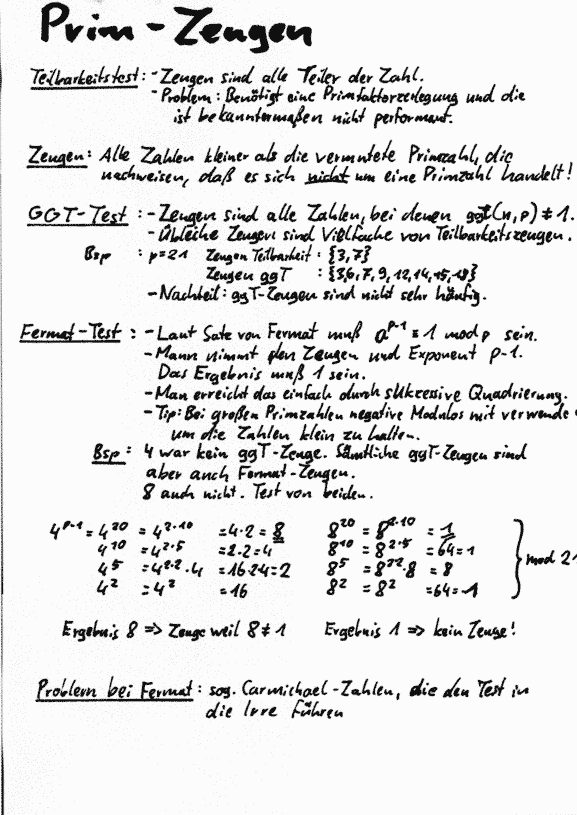 Prim - Zeugen
Teilbarkeitstest: - Zeugen sind alle Teiler der Zahl.
- Problem: Benötigt eine Primfaktorzerlegung und die
ist bekanntermaßen nicht performant.
Zeugen: Alle Zahlen kleiner als die vermutete Primzahl, die
nachweisen, daß es sich nicht um eine Primzahl handelt!
GGT-Test : - Zeugen sind alle Zahlen, bei denen ggT(n,p) ≠ 1.
- Übliche Zeugen sind Vielfache von Teilbarkeitszeugen.
Bsp : p=21 Zeugen Teilbarkeit : {3,7}
Zeugen ggT : {3,6,7,9,12,14,15,18}
- Nachteil: ggT-Zeugen sind nicht sehr häufig.
Fermat-Test : - Laut Satz von Fermat muß a^(p-1) ≡ 1 mod p sein.
- Mann nimmt den Zeugen und Exponent p-1.
Das Ergebnis muß 1 sein.
- Man erreicht das einfach durch sukzessive Quadrierung.
- Tip: Bei großen Primzahlen negative Modulos mit verwende
um die Zahlen klein zu halten.
Bsp: 4 war kein ggT-Zeuge. Sämtliche ggT-Zeugen sind
aber auch Fermat-Zeugen.
8 auch nicht. Test von beiden.
4^(p-1) = 4^20 = 4^(2·10) = 4·2 = 8 8^20 = 8^(2·10) = 1
4^10 = 4^(2·5) = 2·2 = 4 8^10 = 8^(2·5) = 64 = 1
4^5 = 4^(2·2)·4 = 16·24 = 2 8^5 = 8^(22)·8 = 8 mod 21
4^2 = 4^2 = 16 8^2 = 8^2 = 64 = 1
Ergebnis 8 => Zeuge weil 8 ≠ 1 Ergebnis 1 => kein Zeuge!
Problem bei Fermat: sog. Carmichael-Zahlen, die den Test in
die Irre führen